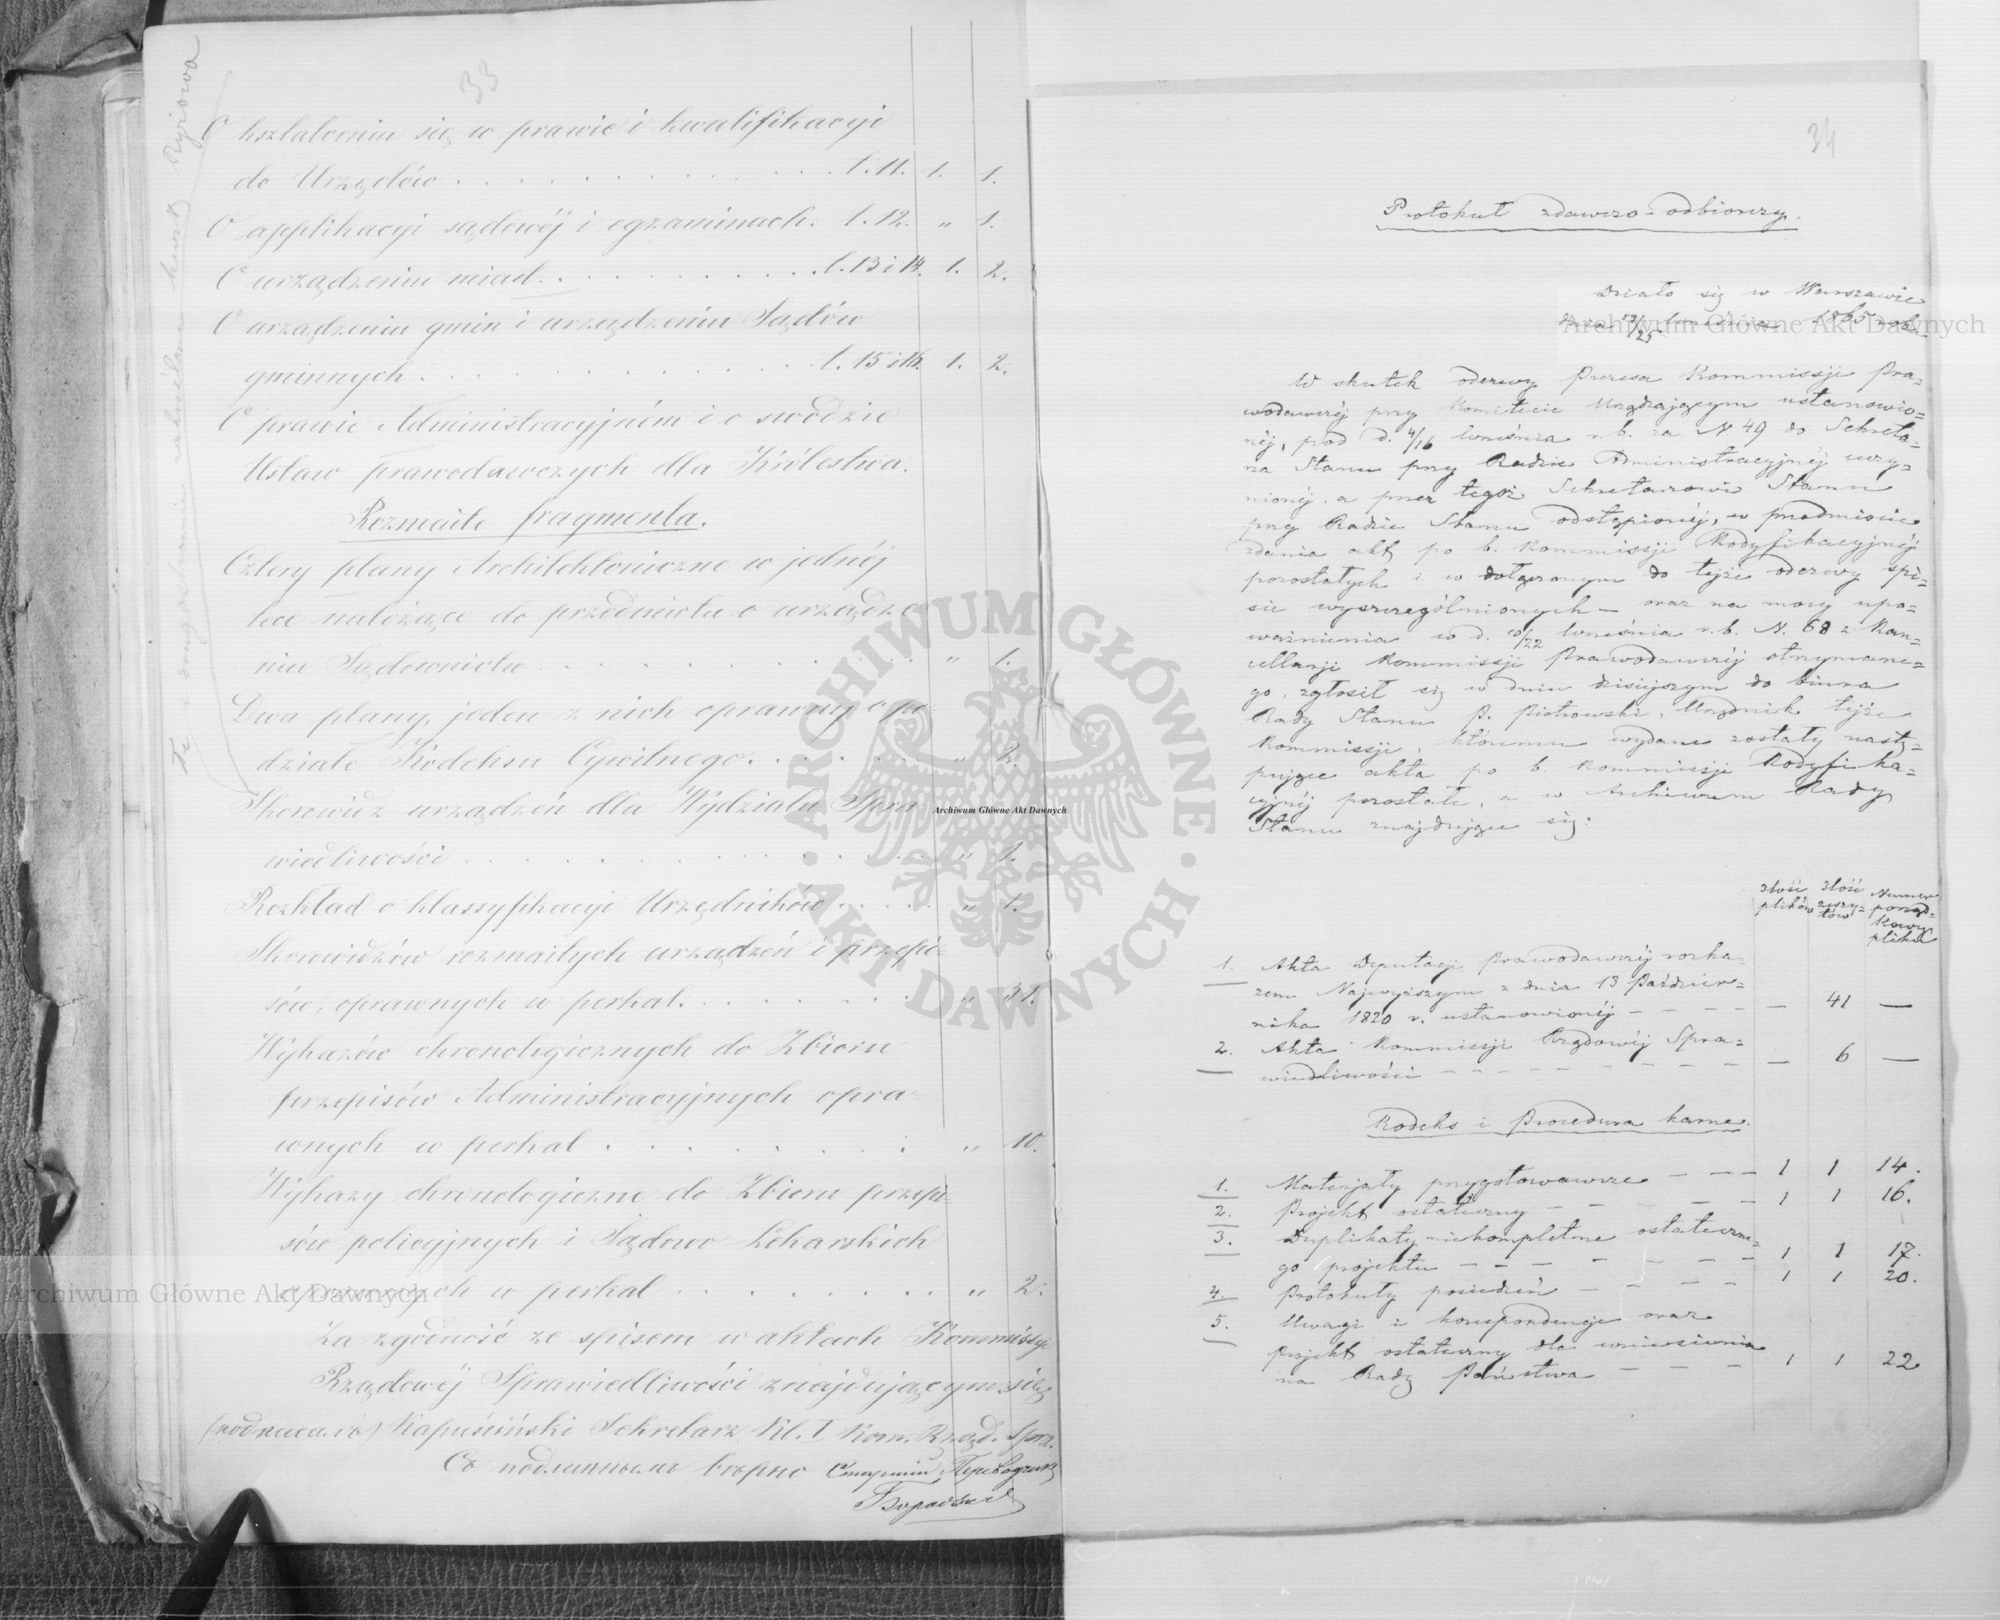 33
O kształceniu się w prawie i kwalifikacyi
do Urzędów . . . l. 11. 1. 1.
O applikacyi sądowéj i egzaminach. l. 12. " 1.
O urządzeniu miast . . . l. 13 i 14. 1. 2.
O urządzeniu gmin i urządzeniu Sądów
gminnych . . . l. 15 i 16. 1. 2.
O prawie Administracyjném i o swodzie
Ustaw prawodawczych dla Królestwa.
Rozmaite fragmenta.
Cztery plany Architektoniczne w jednéj
tece należące do przedmiotu o urządze-
niu Sądownictw . . . " 1.
Dwa plany, jeden z nich oprawny o po-
dziale Kodeksu Cywilnego . . . " 2.
Skorowidz urządzeń dla Wydziału Spra-
wiedliwości . . . " 1.
Rozkład o klassyfikacyi Urzędników . . . " 1.
Skorowidzów rozmaitych urządzeń i przepi-
sów, oprawnych w perkal . . . " 31.
Wykazów chronologicznych do Zbioru
przepisów Administracyjnych opra-
wnych w perkal . . . " 10.
Wykazy chronologiczne do Zbioru przepi-
sów policyjnych i Sądowo Lekarskich
oprawnych w perkal . . . " 2.
Za zgodność ze spisem w aktach Kommissyi
Rządowéj Sprawiedliwości znajdującym się
(подписалъ) Kapuściński Sekretarz Kl. I Kom. Rząd. Spra.
Съ подлиннымъ вѣрно Старшій Переводчикъ
34
Protokuł zdawczo-odbiorczy.
Działo się w Warszawie
dnia 13/25 Września 1865 roku
W skutek odezwy Prezesa Kommissji Pra-
wodawczéj przy Komitecie Urządzającym ustanowio-
néj, pod d. 4/16 Września r. b. za N 49 do Sekreta-
rza Stanu przy Radzie Administracyjnéj uczy-
nionéj, a przez tegoż Sekretarzowi Stanu
przy Radzie Stanu odstąpionéj, w przedmiocie
zdania akt po b. Kommissji Kodyfikacyjnéj
pozostałych i w dołączonym do tejże odezwy spi-
sie wyszczególnionych — oraz na mocy upo-
ważnienia w d. 10/22 Września r. b. N. 68 z Kan-
cellarji Kommissji Prawodawczéj otrzymane-
go, zgłosił się w dniu dzisiejszym do biura
Rady Stanu P. Piotrowski, Urzędnik tejże
Kommissji, któremu wydane zostały nastę-
pujące akta po b. Kommissji Kodyfika-
cyjnéj pozostałe, a w Archiwum Rady
Stanu znajdujące się:
Ilość plików Ilość zeszy-tów Numer porząd-kowy plika
1. Akta Deputacji Prawodawczéj rozka-
zem Najwyższym z dnia 13 Paździer-
nika 1820 r. ustanowionéj - - - — 41 —
2. Akta Kommissji Rządowéj Spra-
wiedliwości - - - — 6 —
Kodeks i Procedura karne.
1. Materjały przygotowawcze - - - 1 1 14.
2. Projekt ostateczny - - - 1 1 16.
3. Duplikaty niekompletne ostateczne-
go projektu - - - 1 1 17.
4. Protokuły posiedzeń - - - 1 1 20.
5. Uwagi i korespondencje oraz
projekt ostateczny dla wniesienia
na Radę Państwa - - - 1 1 22
ARCHIWUM GŁÓWNE AKT DAWNYCH
Archiwum Główne Akt Dawnych
Archiwum Główne Akt Dawnych
Archiwum Główne Akt Dawnych